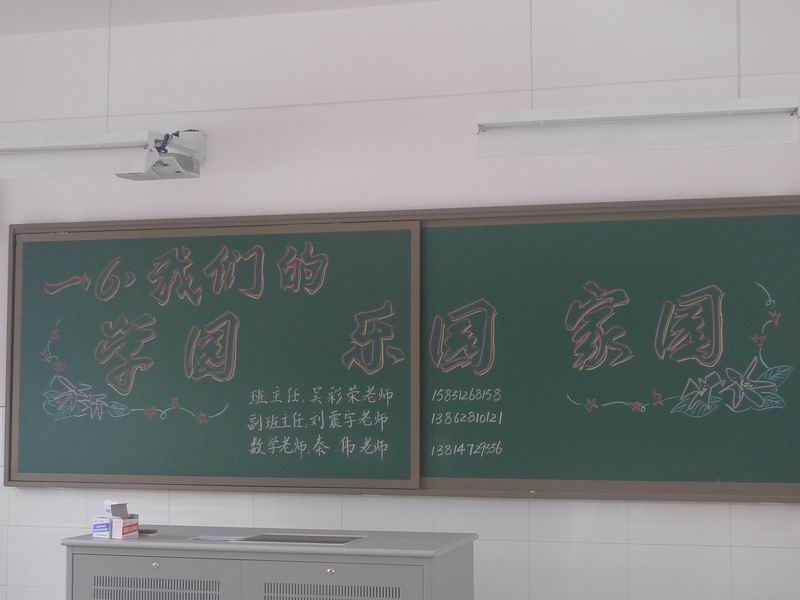 一、6、我们的
学园 乐园 家园
班主任:吴彩荣老师 15851268158
副班主任:刘震宇老师 13862810121
数学老师:秦 伟老师 13814729556